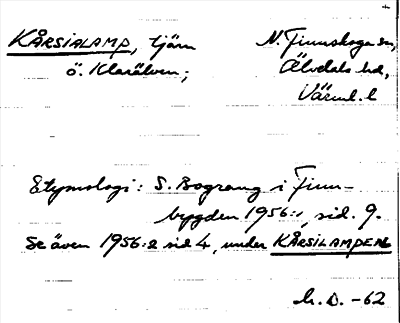 KÅRSIALAMP, tjärn N. Finnskoga sn,
ö. Klarälven; Älvdals hd,
Värml. l
Etymologi: S. Bograng i Finn-
bygden 1956:1, sid. 9.
Se även 1956:2 sid 4, under KÅRSILAMPEN
h. D. -62